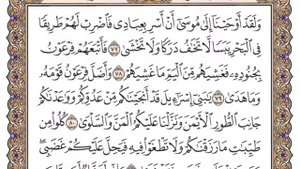 وَلَقَدْ أَوْحَيْنَآ إِلَىٰ مُوسَىٰٓ أَنْ أَسْرِ بِعِبَادِى فَٱضْرِبْ لَهُمْ طَرِيقًا
فِى ٱلْبَحْرِ يَبَسًا لَّا تَخَٰفُ دَرَكًا وَلَا تَخْشَىٰ ٧٧ فَأَتْبَعَهُمْ فِرْعَوْنُ
بِجُنُودِهِۦ فَغَشِيَهُم مِّنَ ٱلْيَمِّ مَا غَشِيَهُمْ ٧٨ وَأَضَلَّ فِرْعَوْنُ قَوْمَهُۥ
وَمَا هَدَىٰ ٧٩ يَٰبَنِىٓ إِسْرَٰٓءِيلَ قَدْ أَنجَيْنَٰكُم مِّنْ عَدُوِّكُمْ وَوَٰعَدْنَٰكُمْ
جَانِبَ ٱلطُّورِ ٱلْأَيْمَنَ وَنَزَّلْنَا عَلَيْكُمُ ٱلْمَنَّ وَٱلسَّلْوَىٰ ٨٠ كُلُوا۟ مِن
طَيِّبَٰتِ مَا رَزَقْنَٰكُمْ وَلَا تَطْغَوْا۟ فِيهِ فَيَحِلَّ عَلَيْكُمْ غَضَبِى